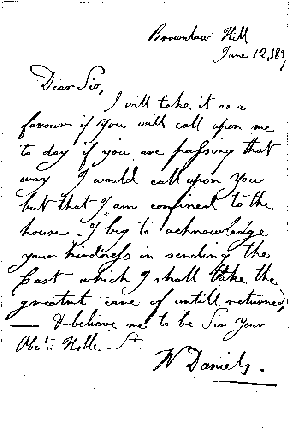 Brownlow Hill
June 12, 183
Dear Sir,
I will take it as a
favour if you will call upon me
to day if you are passing that
way I would call upon you
but that I am confined to the
house I beg to acknowledge
your kindness in sending the
which I shall take the
greatest care of untill returned,
— & believe me to be Sir Your
Obt. Hble. St.
W Daniels.